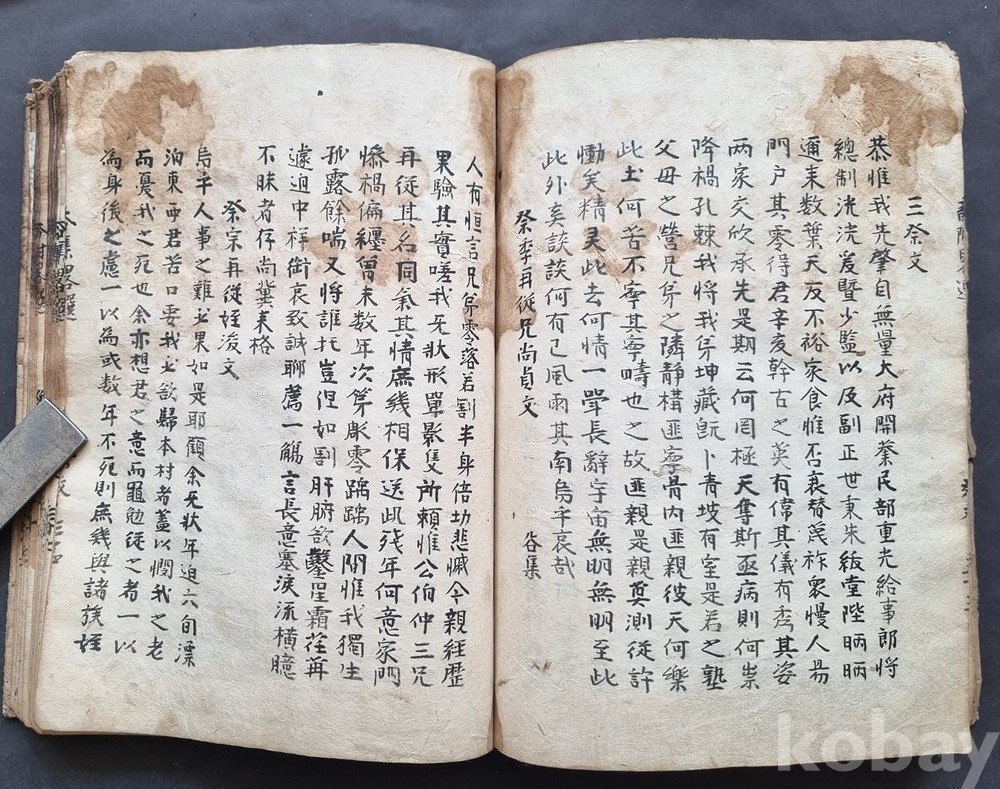 三祭文
恭惟我先肇自無量大府開蔡民部重光給事郎將
總制洸洸爰曁少監以及副正世秉朱紱堂陛昞昞
逦來数葉天反不裕家食惟否衰替爲祚衆慢人昜
門户其零得君辛亥幹古之英有偉其儀有秀其姿
两家交欣承先是期云何罔極天奪斯亟病則何祟
降禍孔棘我將我㐧坤藏旣卜靑坡有室是君之塾
父母之營兄㐧之隣靜構匪寧骨肉匪親彼天何樂
此土何苦不寧其寧疇也之故匪親是親奠測從許
慟矣精灵此去何情一聲長辭宇宙無明無明至此
此外矣談談何有已風雨其南烏乎哀哉
谷集
祭李再從兄尚貞文
人有恒言兄㐧零落若割半身倍㓛悲慽今親經歷
果驗其實嗟我旡狀形單影隻所頼惟公伯仲三兄
再從其名同氣其情庶幾相保送此殘年何意家門
憯禍偏纏曾未数年次㐧彫零踽踽人間惟我獨生
孤露餘喘又將誰托豈涅如割肝腑欲鑿星霜荏苒
遽迫中祥銜哀致誠聊薦一觴言長意塞淚流橫臆
不昧者存尚冀来格
祭宗再從姪浚文
烏乎人事之難必果如是耶顧余旡狀年迫六旬漂
泊東西君苦口要我必欲歸本村者盖以憫我之老
而憂我之死也余亦想君之意而黽勉從之者一以
為身後之慮一以為或数年不死則庶幾與諸族姪
kobay